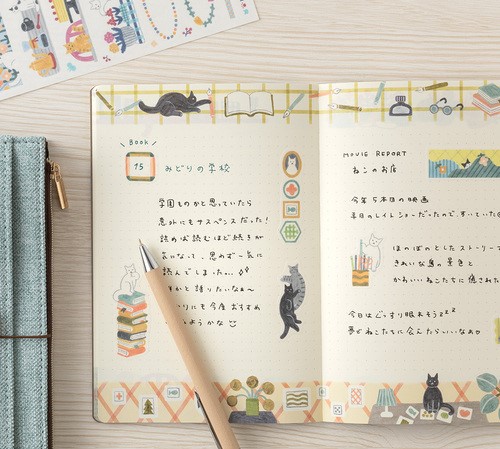 Book
15
みどりの学校
学園ものかと思っていたら
意外にもサスペンスだった!
読めば読むほど続きが
なって、思わず一気に
読んでしまった...
かと語りたいなぁ〜
にも今度おすすめ
ようかな
MOVIE REPORT
ねこのお店
今年5本目の映画
レイトショーだったので、すいていた
ほのぼのとしたストーリー
きれいな島の景色と
かわいいねこたちに癒された
今日はぐっすり眠れそうzzz
夢でねこたちに会えたらいいなぁ